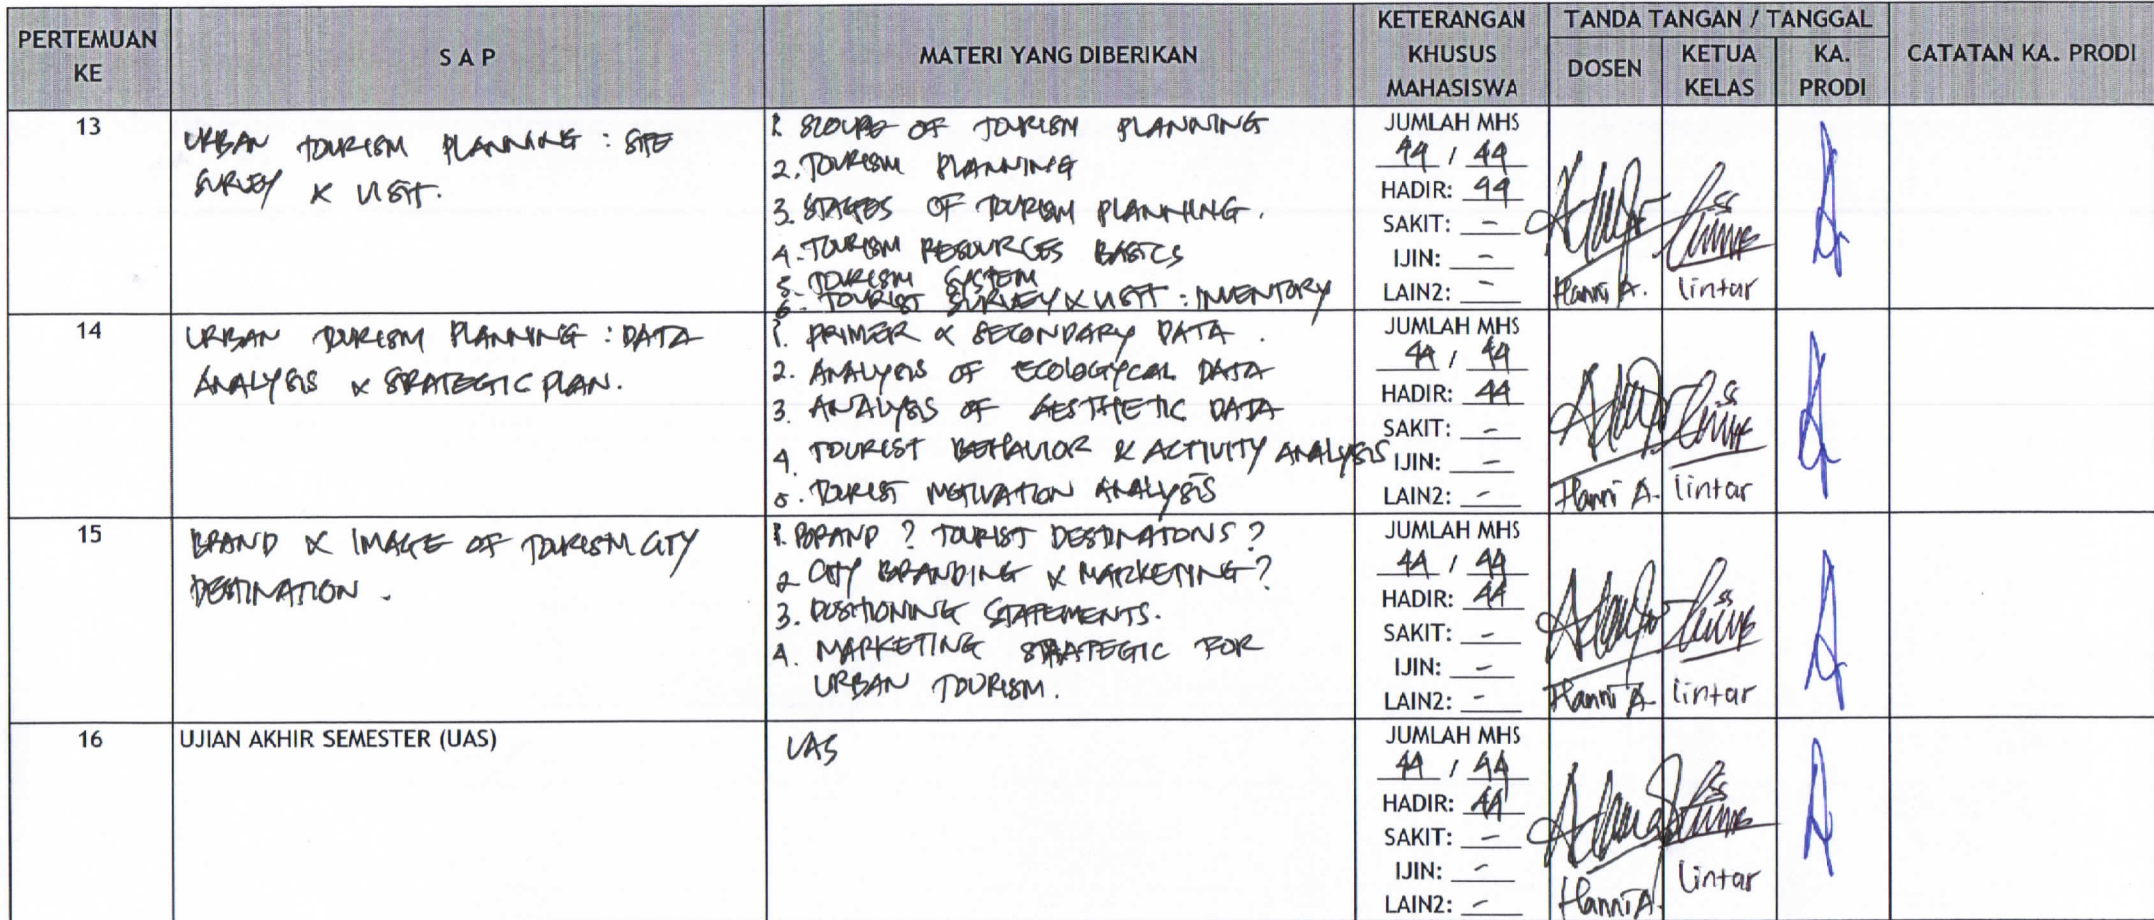 PERTEMUAN KE
S A P
MATERI YANG DIBERIKAN
KETERANGAN KHUSUS MAHASISWA
TANDA TANGAN / TANGGAL
DOSEN
KETUA KELAS
KA. PRODI
CATATAN KA. PRODI
13
URBAN TOURISM PLANNING : SITE
SURVEY & VISIT.
1. SCOUPE OF TOURISM PLANNING
2. TOURISM PLANNING
3. STAGES OF TOURISM PLANNING.
4. TOURISM RESOURCES BASICS
5. TOURISM SYSTEM
6. TOURIST SURVEY & VISIT : INVENTORY
JUMLAH MHS
44 / 44
HADIR: 44
SAKIT: -
IJIN: -
LAIN2: -
Hanni A.
lintar
14
URBAN TOURISM PLANNING : DATA
ANALYSIS & STRATEGIC PLAN.
1. PRIMER & SECONDARY DATA.
2. ANALYSIS OF ECOLOGYCAL DATA
3. ANALYSIS OF AESTHETIC DATA
4. TOURIST BEHAVIOR & ACTIVITY ANALYSIS
5. TOURIST MOTIVATION ANALYSIS
JUMLAH MHS
44 / 44
HADIR: 44
SAKIT: -
IJIN: -
LAIN2: -
Hanni A.
lintar
15
BRAND & IMAGE OF TOURISM CITY
DESTINATION.
1. BRAND ? TOURIST DESTINATONS ?
2 CITY BRANDING & MARKETING ?
3. POSITIONING STATEMENTS.
4. MARKETING STRATEGIC FOR
URBAN TOURISM.
JUMLAH MHS
44 / 44
HADIR: 44
SAKIT: -
IJIN: -
LAIN2: -
Hanni A.
lintar
16
UJIAN AKHIR SEMESTER (UAS)
UAS
JUMLAH MHS
44 / 44
HADIR: 44
SAKIT: -
IJIN: -
LAIN2: -
Hanni A.
lintar